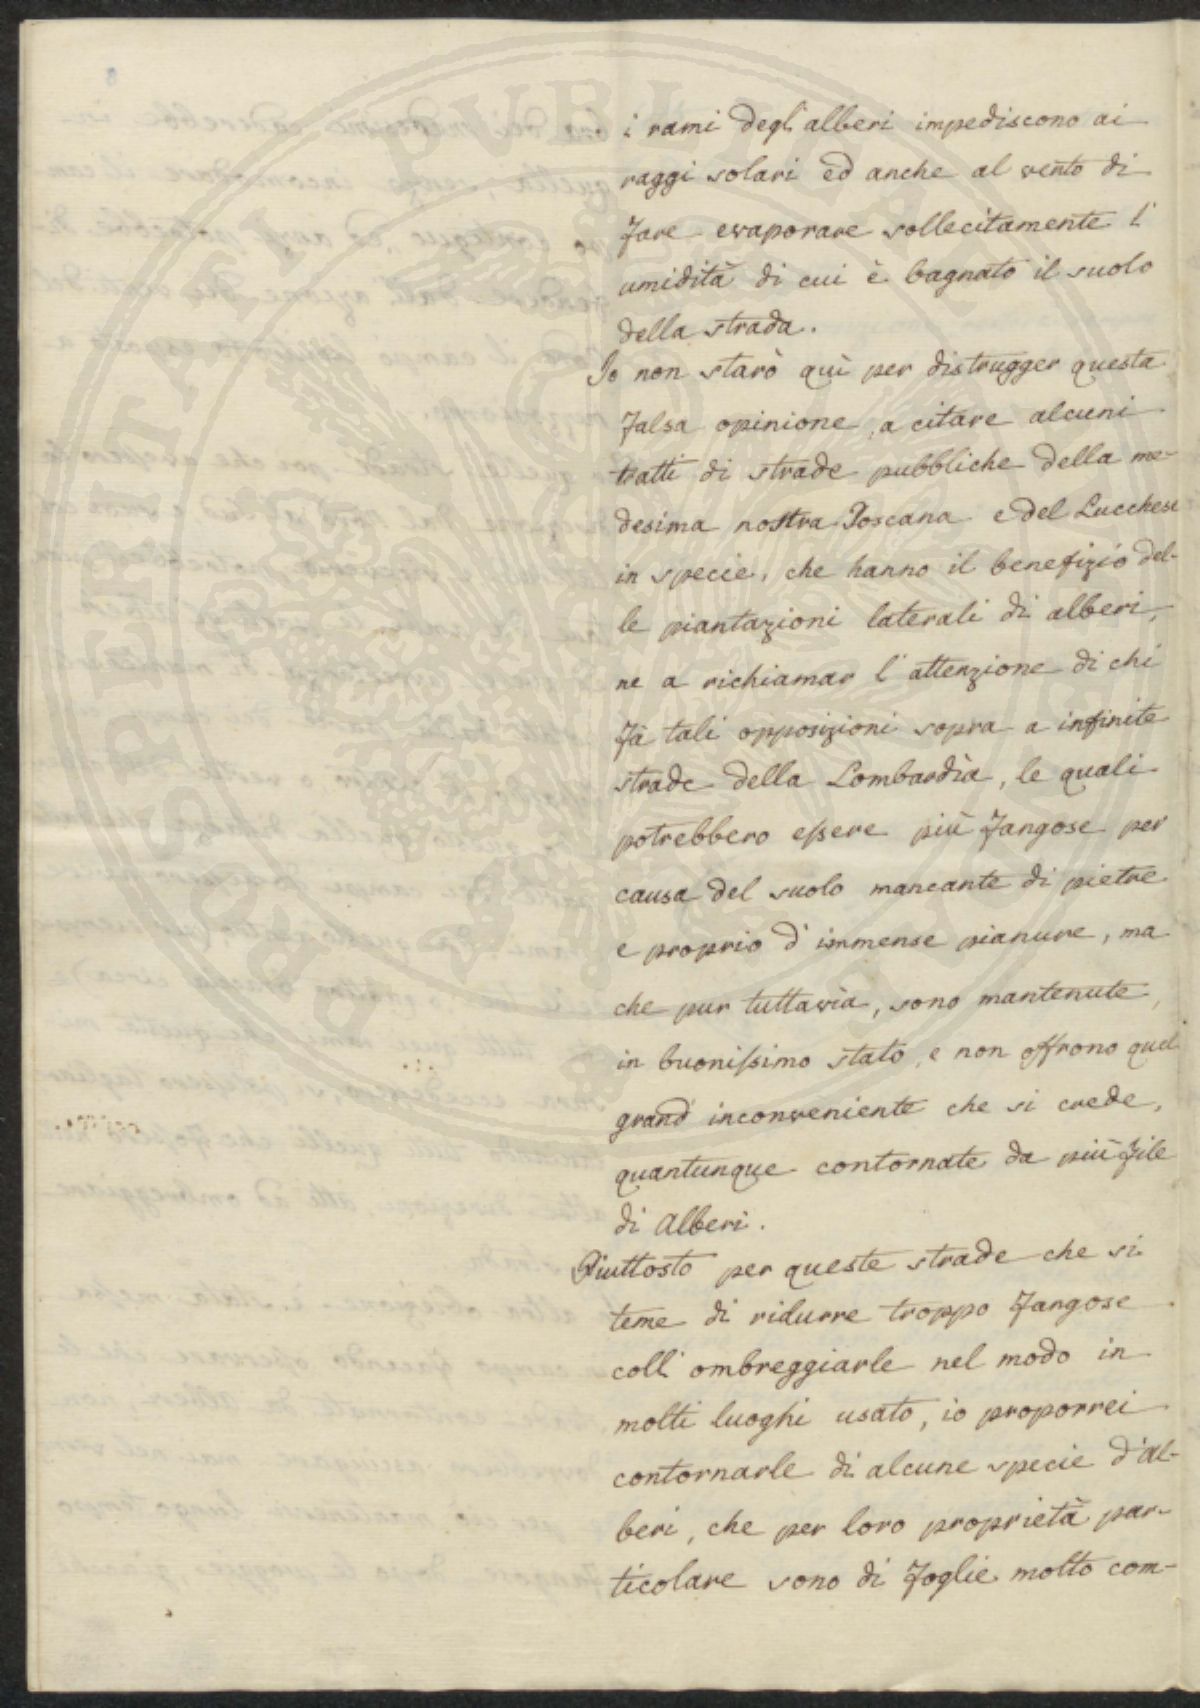 i rami degl'alberi impediscono ai
raggi solari ed anche al vento di
fare evaporare sollecitamente l'
umidità di cui è bagnato il suolo
della strada.
Io non starò quì per distrugger questa
falsa opinione, a citare alcuni
tratti di strade pubbliche della me-
desima nostra Toscana e del Lucchese
in specie, che hanno il benefizio del-
le piantazioni laterali di alberi,
ne a richiamar l'attenzione di chi
fà tali opposizioni sopra a infinite
strade della Lombardìa, le quali
potrebbero eſsere più fangose per
causa del suolo mancante di pietre
e proprio d'immense pianure, ma
che pur tuttavìa, sono mantenute,
in buoniſsimo stato, e non offrono quel
grand'inconveniente che si crede,
quantunque contornate da più file
di Alberi.
Piuttosto per queste strade che si
teme di ridurre troppo fangose
coll'ombreggiarle nel modo in
molti luoghi usato, io proporrei
contornarle di alcune specie d'Al-
beri, che per loro proprietà par-
ticolare sono di foglie molto com-